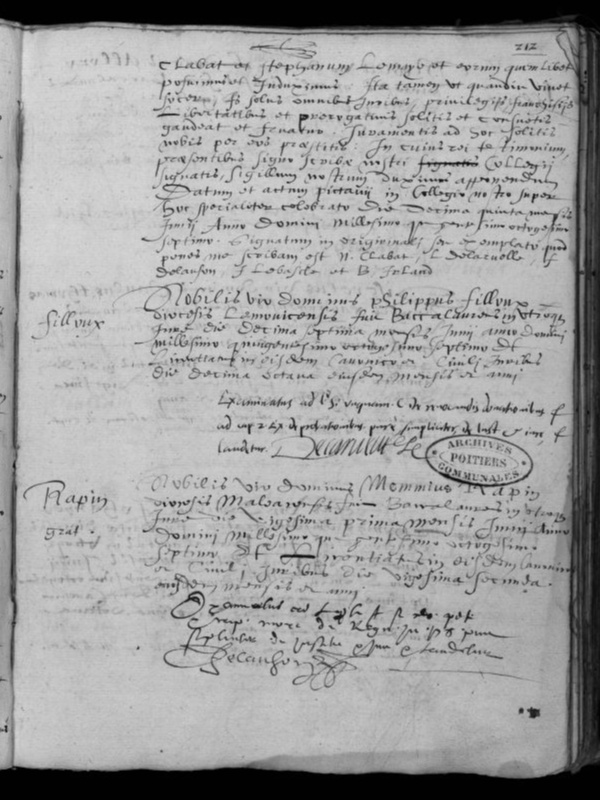 212
Clabat et Stephanum Lemaye et eorum quemlibet
posuimus et Induximus Ita tamen ut quandiu vivet
socer, Is solus omnibus Juribus, privilegiis franchisiis
Libertatibus et prerogativis solitis et consuetis
gaudeat et fruatur. Juramentis ad hoc solitis
nobis per eos prestitis. In cuius rei testimonium,
presentibus signo scribe nostri Collegii
signatis, sigillum nostrum duximus apponendum
Datum et actum pictavii in Collegio nostro super
hoc specialiter celebrato die decima quinta mensis
Junii Anno domini Millesimo quingentesimo octogesimo
septimo. Signatum in originali, seu exemplato quod
penes me scribam est N. Clabat, L delaruelle, f
delauson, J Lebascle et B. Irland
filloux
Nobilis vir dominus philippus filloux
diocesis Lemovicensis fuit Baccalaureus in utroque
Jure die decima septima mensis Junii anno domini
millesimo quingentesimo octogesimo septimo Et
Licentiatus in eisdem Canonico et Civili Juribus
die decima octava eiusdem mensis et anni
Examinatus ad
ad cap 2 Ex pure simpliciter de
laudetur.
ARCHIVES
POITIERS
COMMUNALES
Rapin
grat.
Nobilis vir dominus Memmius Rapin
diocesis fuit Baccalaureus in utroque
Jure die vigesima prima mensis Junii Anno
domini Millesimo quingentesimo octogesimo
septimo Et Licentiatus in eisdem Canonico
et Civili Juribus die vigesima secunda
eiusdem mensis et anni
Examinatus ad
pure
simpliciter de